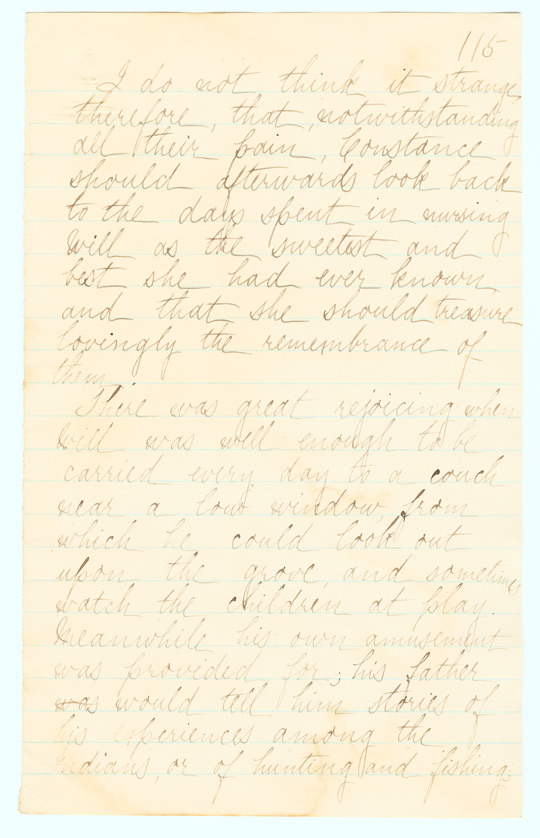 115
I do not think it strange,
therefore, that, notwithstanding
all their pain, Constance
should afterwards look back
to the days spent in nursing
Will as the sweetest and
best she had ever known,
and that she should treasure
lovingly the remembrance of
them.
There was great rejoicing when
Will was well enough to be
carried every day to a couch
near a low window, from
which he could look out
upon the grove, and sometimes
watch the children at play.
Meanwhile his own amusement
was provided for; his father
was would tell him stories of
his experiences among the
Indians, or of hunting and fishing;